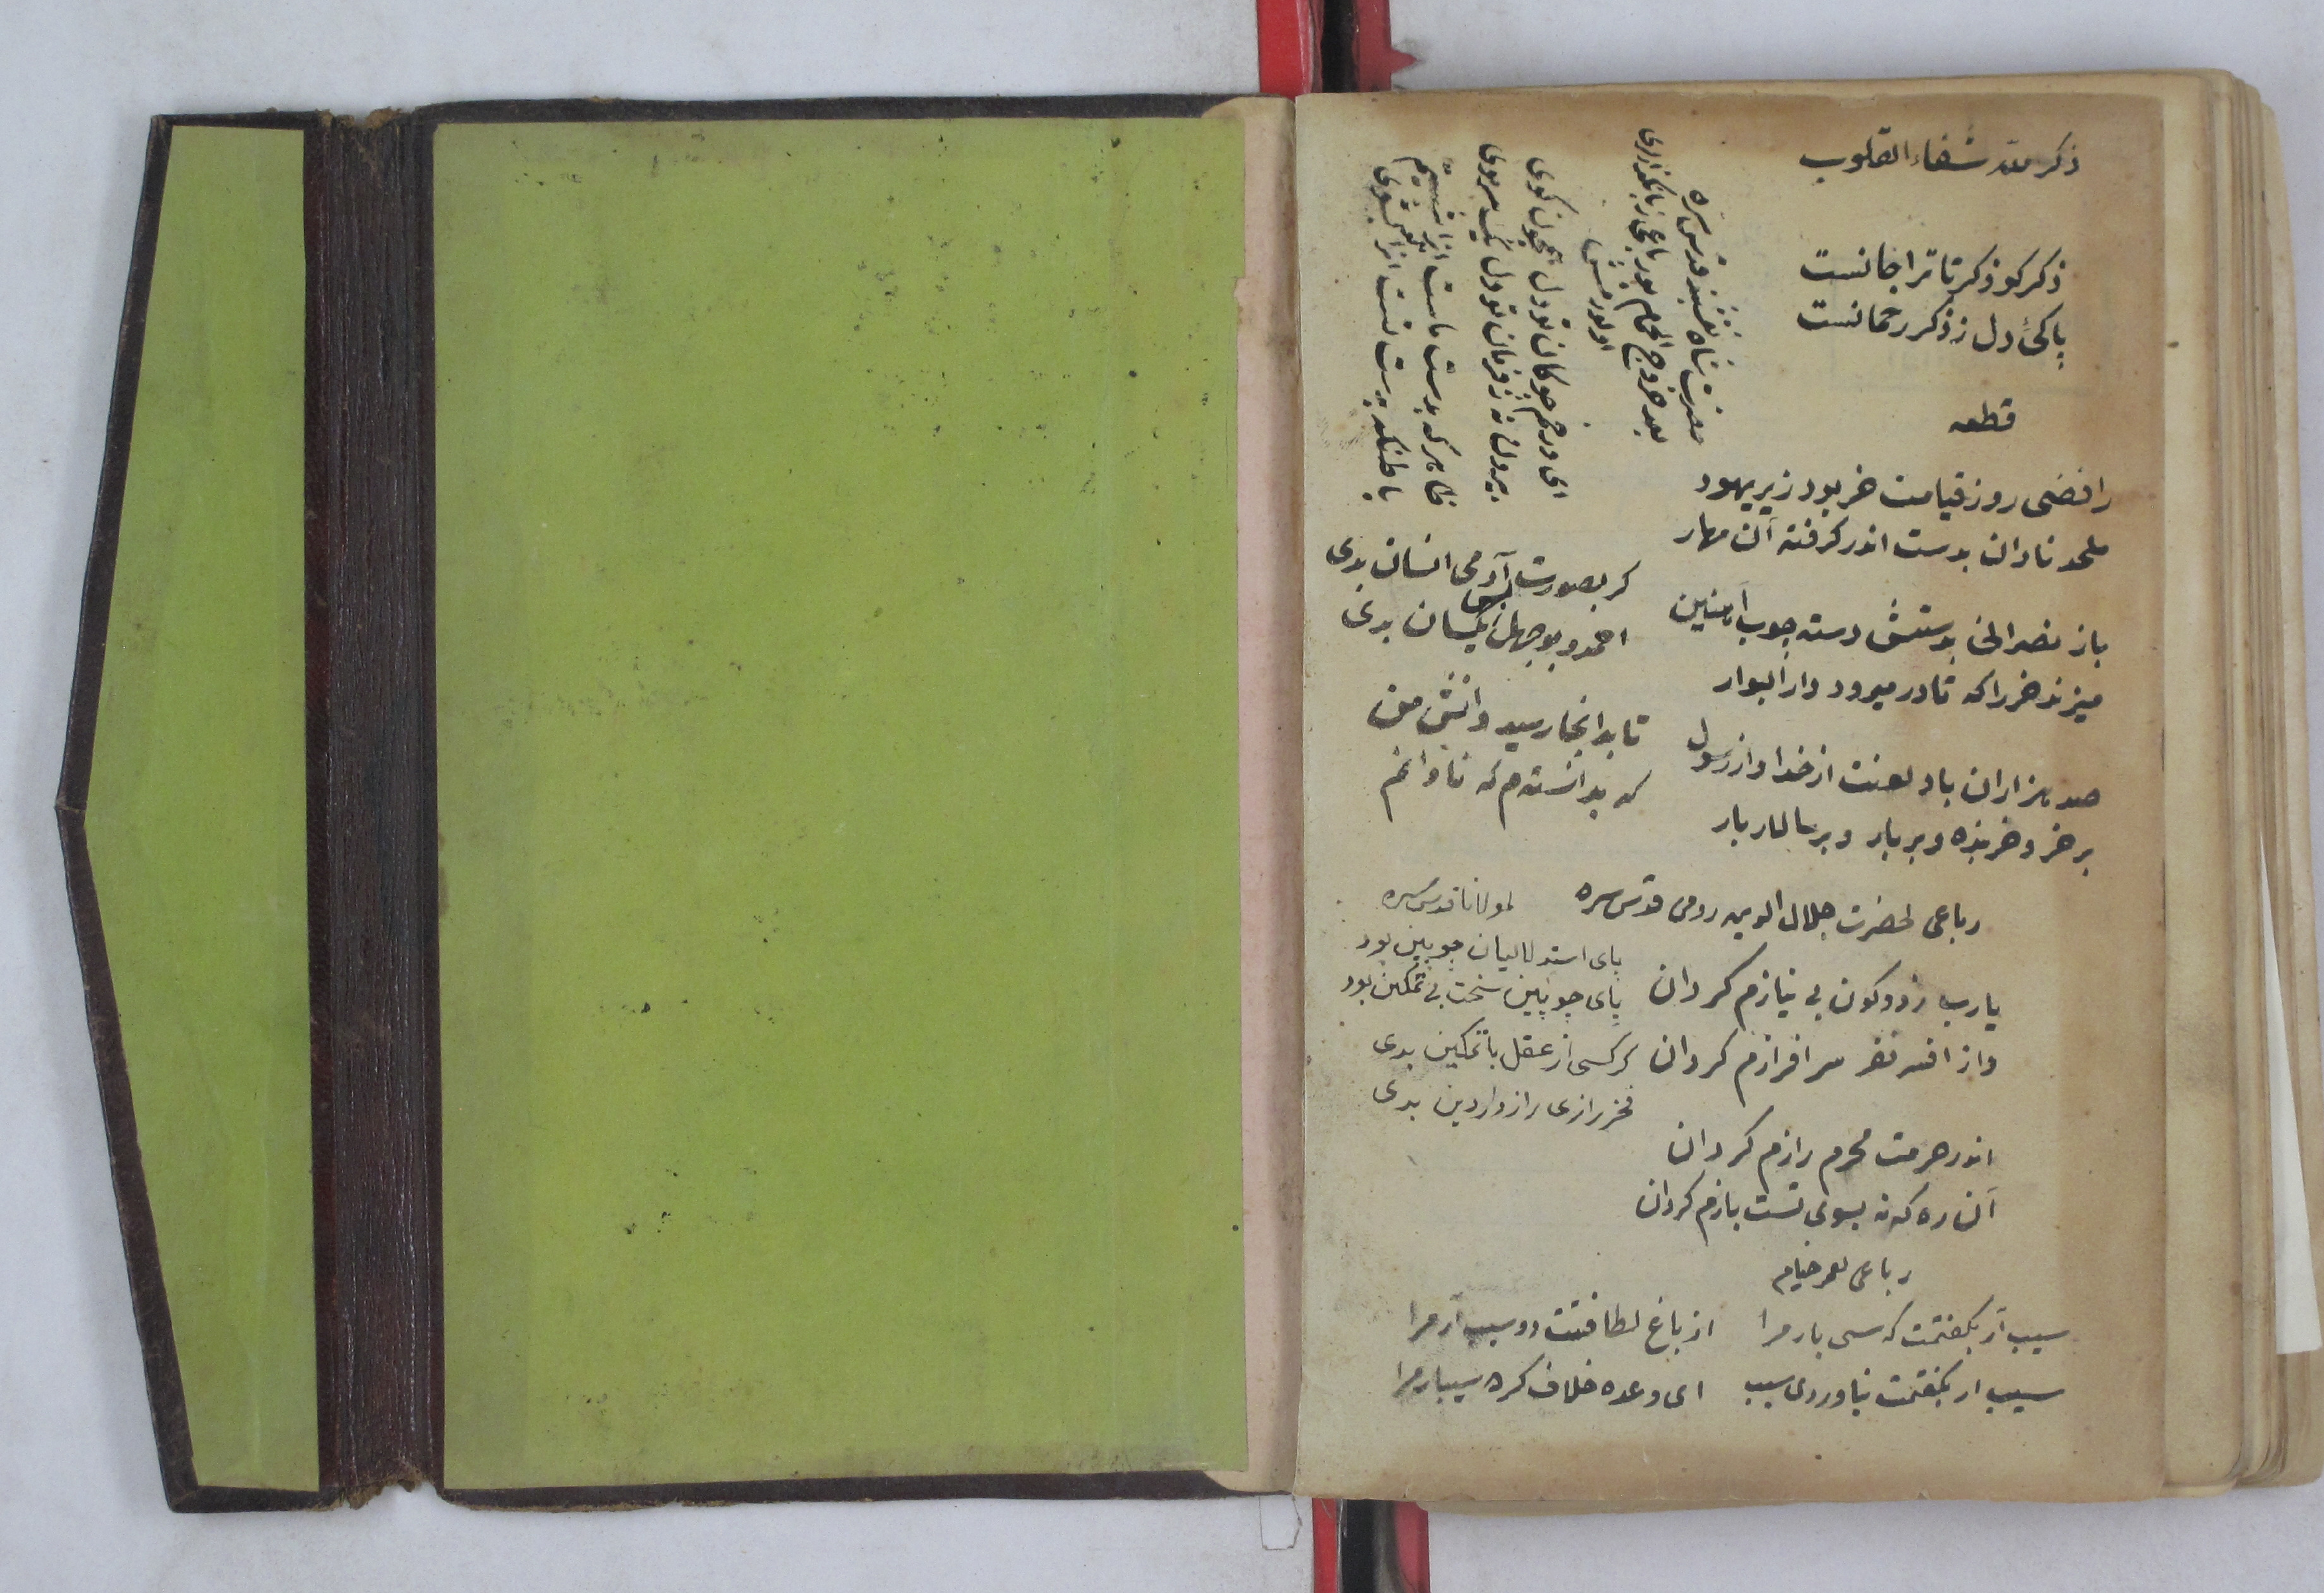 ذکر الله شفاء القلوب
ذکر کو ذکر تا ترا جانست
پاکئ دل ز ذکر رحمانست
قطعه
رافضی روز قیامت خر بود زیر یهود
ملحد نادان بدست اندر کرفته آن مهار
باز نصرانی بدستش دسته چوب آهنین
میزند خر را که تا در میرود دار البوار
صد هزاران باد لعنت از خدا و از رسول
بر خر و خربنده و بر بار و بر سالار بار
حضرت شاه نقشبند قدس سره
بعد خروج الحمام بو رباعی زبانکذاری
اولورمش
ای در خم چوکان تو دل همچون کوی
بیرون نه ز فرمان تو دل یک سر موی
ظاهر که بدست ماست شستیم
باطنکه بدست تست آنرا تو بشوی
کر بصورت آدمی انسان بدی
احمد و بوجهل پس یکسان بدی
تا بدانجا رسید دانش من
که بدانسته م که نادانم
رباعی لحضرت جلال الدین رومی قدس سره
یا رب ز دو کون بی نیازم کردان
واز افسر فقر سرافرازم کردان
اندر حرمت محرم رازم کردان
آن ره که نه بسوی تست بازم کردان
لمولانا قدس سره
پای استدلالیان چوبین بود
پای چوبین سخت بی تمکین بود
کر کسی از عقل باتمکین بدی
فخر رازی رازدار دین بدی
رباعی لعمر خیام
سیب آر بکفتمت که سی بار مرا از باغ لطافتت دو سیب آر مرا
سیب ار بکفتمت نیاوردی سیب ای وعده خلاف کره سیبار مرا